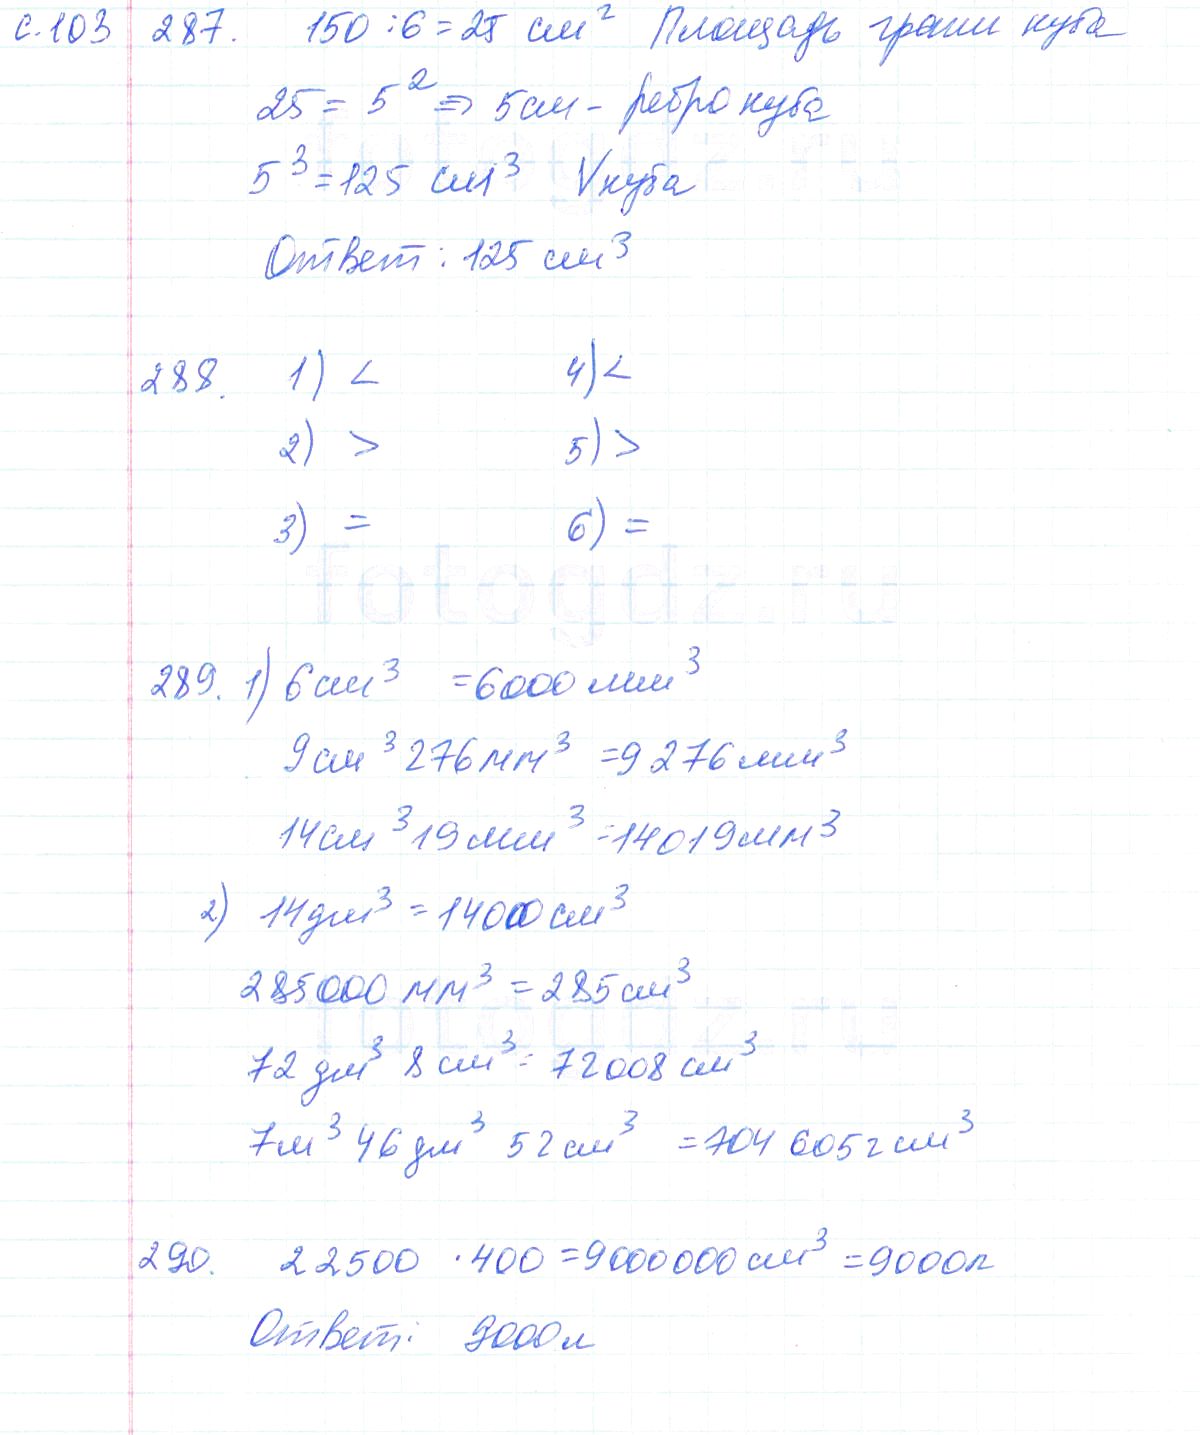 с.103 287. 150 : 6 = 25 см² Площадь грани куба
25 = 5² => 5см - ребро куба
5³ = 125 см³ V куба
Ответ: 125 см³
288. 1) < 4) <
2) > 5) >
3) = 6) =
fotogdz.ru
289. 1) 6см³ = 6000 мм³
9см³ 276мм³ = 9276мм³
14см³ 19мм³ = 14019мм³
2) 14дм³ = 14000см³
285000 мм³ = 285см³
72 дм³ 8 см³ = 72008 см³
7м³ 46 дм³ 52 см³ = 7046052 см³
290. 22500 · 400 = 9000000 см³ = 9000л
Ответ: 9000л